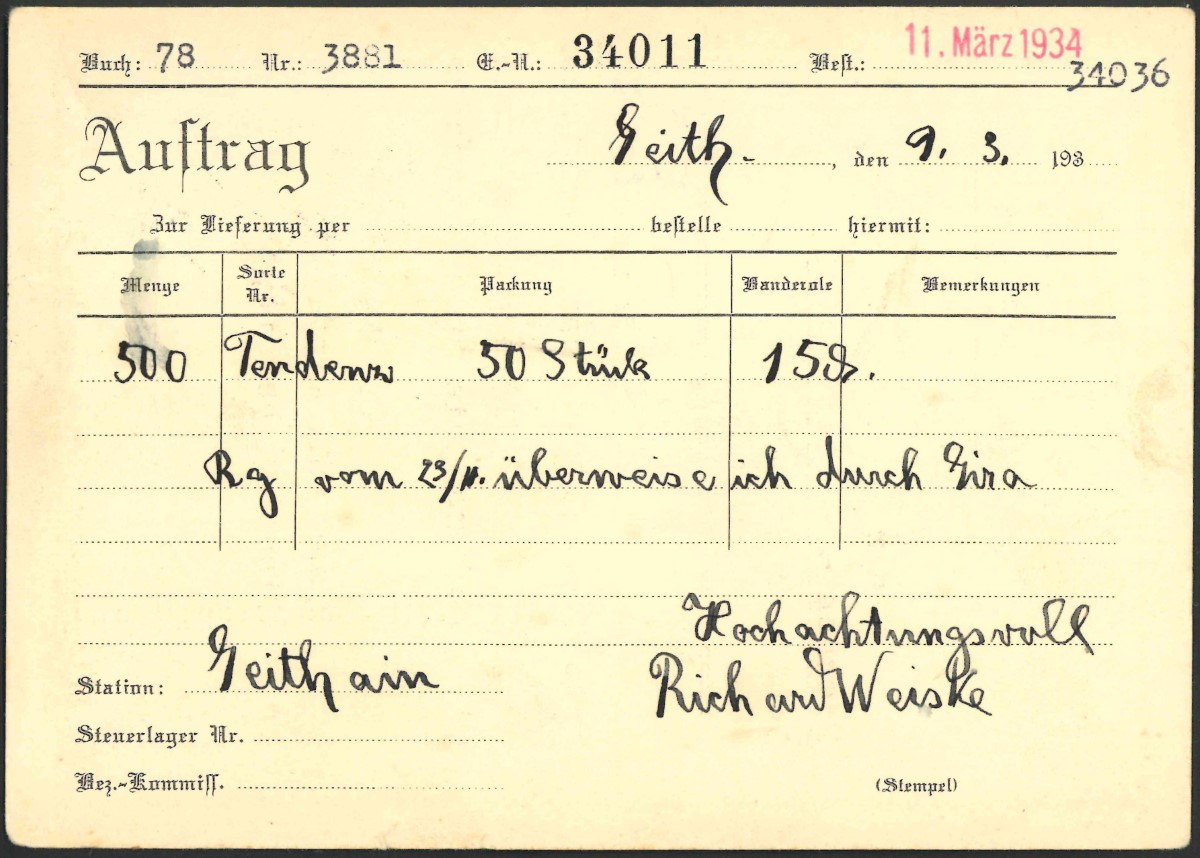 Buch: 78 Nr.: 3881 E.-N.: 34011 Best.: 11. März 1934
34036
Auftrag Geith. , den 9. 3. 193
Zur Lieferung per bestelle hiermit:
Menge Sorte Nr. Packung Banderole Bemerkungen
500 Tendenz 50 Stück 15
Rg vom 23/11. überweise ich durch Giro
Hochachtungsvoll
Station: Geithain Richard Weiske
Steuerlager Nr.
Bez.-Kommiss. (Stempel)